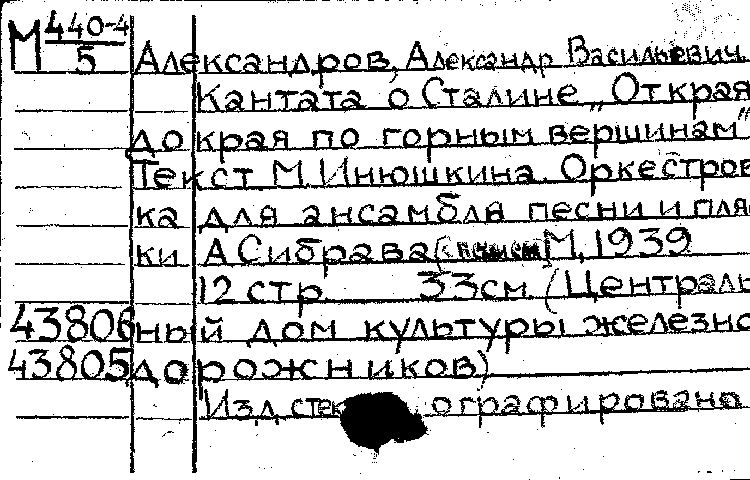 М 440-4
5
Александров, Александр Васильевич
Кантата о Сталине „От края
до края по горным вершинам"
Текст М. Инюшкина. Оркестров
ка для ансамбля песни и пляс
ки А Сибрава М, 1939
12 стр. 33см. (Централь
43806 ный дом культуры железно
43805 дорожников)
Изд. ографировано